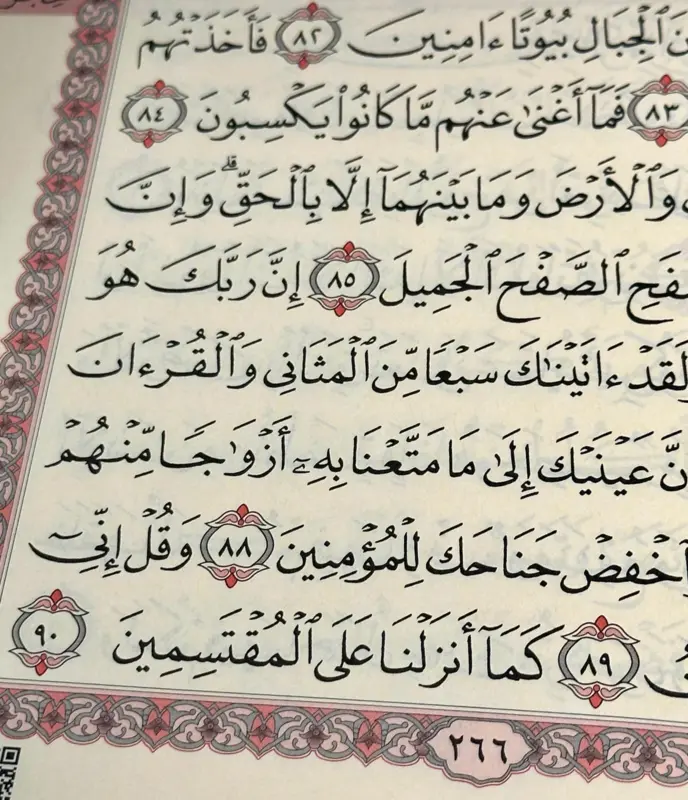 ٱلْجِبَالِ بُيُوتًا ءَامِنِينَ ٨٢ فَأَخَذَتْهُمُ
٨٣ فَمَآ أَغْنَىٰ عَنْهُم مَّا كَانُوا۟ يَكْسِبُونَ ٨٤
وَٱلْأَرْضَ وَمَا بَيْنَهُمَآ إِلَّا بِٱلْحَقِّ ۗ وَإِنَّ
ٱلصَّفْحَ ٱلْجَمِيلَ ٨٥ إِنَّ رَبَّكَ هُوَ
ءَاتَيْنَٰكَ سَبْعًا مِّنَ ٱلْمَثَانِى وَٱلْقُرْءَانَ
عَيْنَيْكَ إِلَىٰ مَا مَتَّعْنَا بِهِۦٓ أَزْوَٰجًا مِّنْهُمْ
جَنَاحَكَ لِلْمُؤْمِنِينَ ٨٨ وَقُلْ إِنِّىٓ
٨٩ كَمَآ أَنزَلْنَا عَلَى ٱلْمُقْتَسِمِينَ ٩٠
٢٦٦